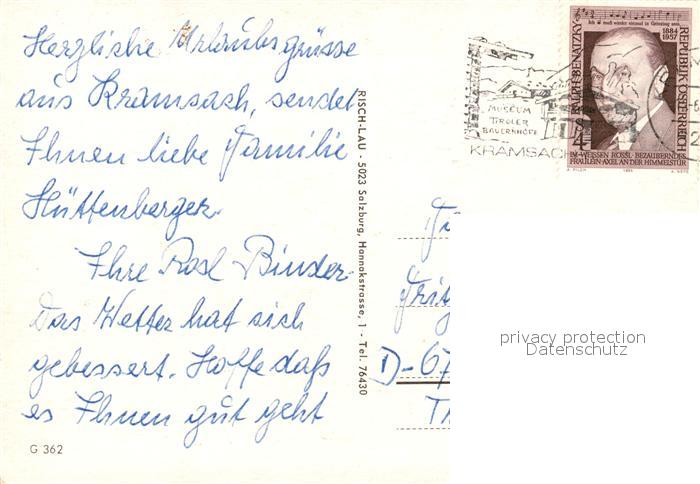 Herzliche Urlaubsgrüsse
aus Kramsach, sendet
Ihnen liebe Familie
Hüttenberger.
Ihre Rosl Binder.
Das Wetter hat sich
gebessert. Hoffe daß
es Ihnen gut geht
G 362
RISCH-LAU - 5023 Salzburg, Hannakstrasse, 1 - Tel. 76430
MUSEUM
TIROLER
BAUERNHÖFE
KRAMSACH
1884
1957
RALPH BENATZKY
REPUBLIK ÖSTERREICH
IM WEISSEN RÖSSL · BEZAUBERNDES
FRÄULEIN · AXEL AN DER HIMMELSTÜR
D-67
privacy protection
Datenschutz